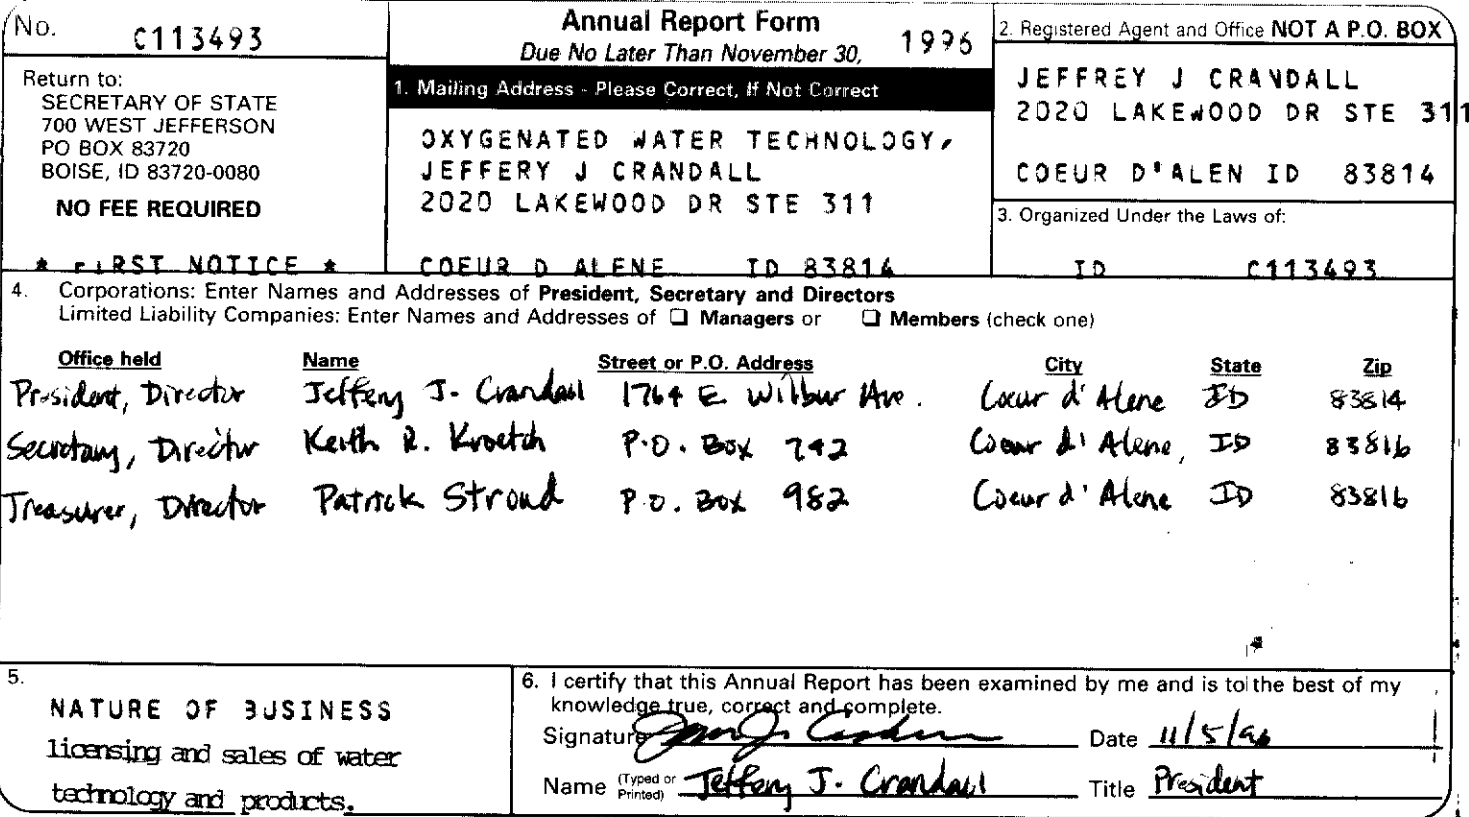 No. C113493
Return to:
SECRETARY OF STATE
700 WEST JEFFERSON
PO BOX 83720
BOISE, ID 83720-0080
NO FEE REQUIRED
* FIRST NOTICE *
Annual Report Form
Due No Later Than November 30, 1996
1. Mailing Address - Please Correct, If Not Correct
OXYGENATED WATER TECHNOLOGY,
JEFFERY J CRANDALL
2020 LAKEWOOD DR STE 311
COEUR D ALENE ID 83814
2. Registered Agent and Office NOT A P.O. BOX
JEFFREY J CRANDALL
2020 LAKEWOOD DR STE 311
COEUR D'ALEN ID 83814
3. Organized Under the Laws of:
ID C113493
4. Corporations: Enter Names and Addresses of President, Secretary and Directors
Limited Liability Companies: Enter Names and Addresses of ❑ Managers or ❑ Members (check one)
Office held Name Street or P.O. Address City State Zip
President, Director Jeffery J. Crandall 1764 E. Wilbur Ave. Coeur d'Alene ID 83814
Secretary, Director Keith R. Kroetch P.O. Box 742 Coeur d'Alene, ID 83816
Treasurer, Director Patrick Stroud P.O. Box 982 Coeur d'Alene ID 83816
5.
NATURE OF BUSINESS
licensing and sales of water
technology and products.
6. I certify that this Annual Report has been examined by me and is to the best of my
knowledge true, correct and complete.
Signature Date 11/5/96
Name (Typed or Printed) Jeffery J. Crandall Title President